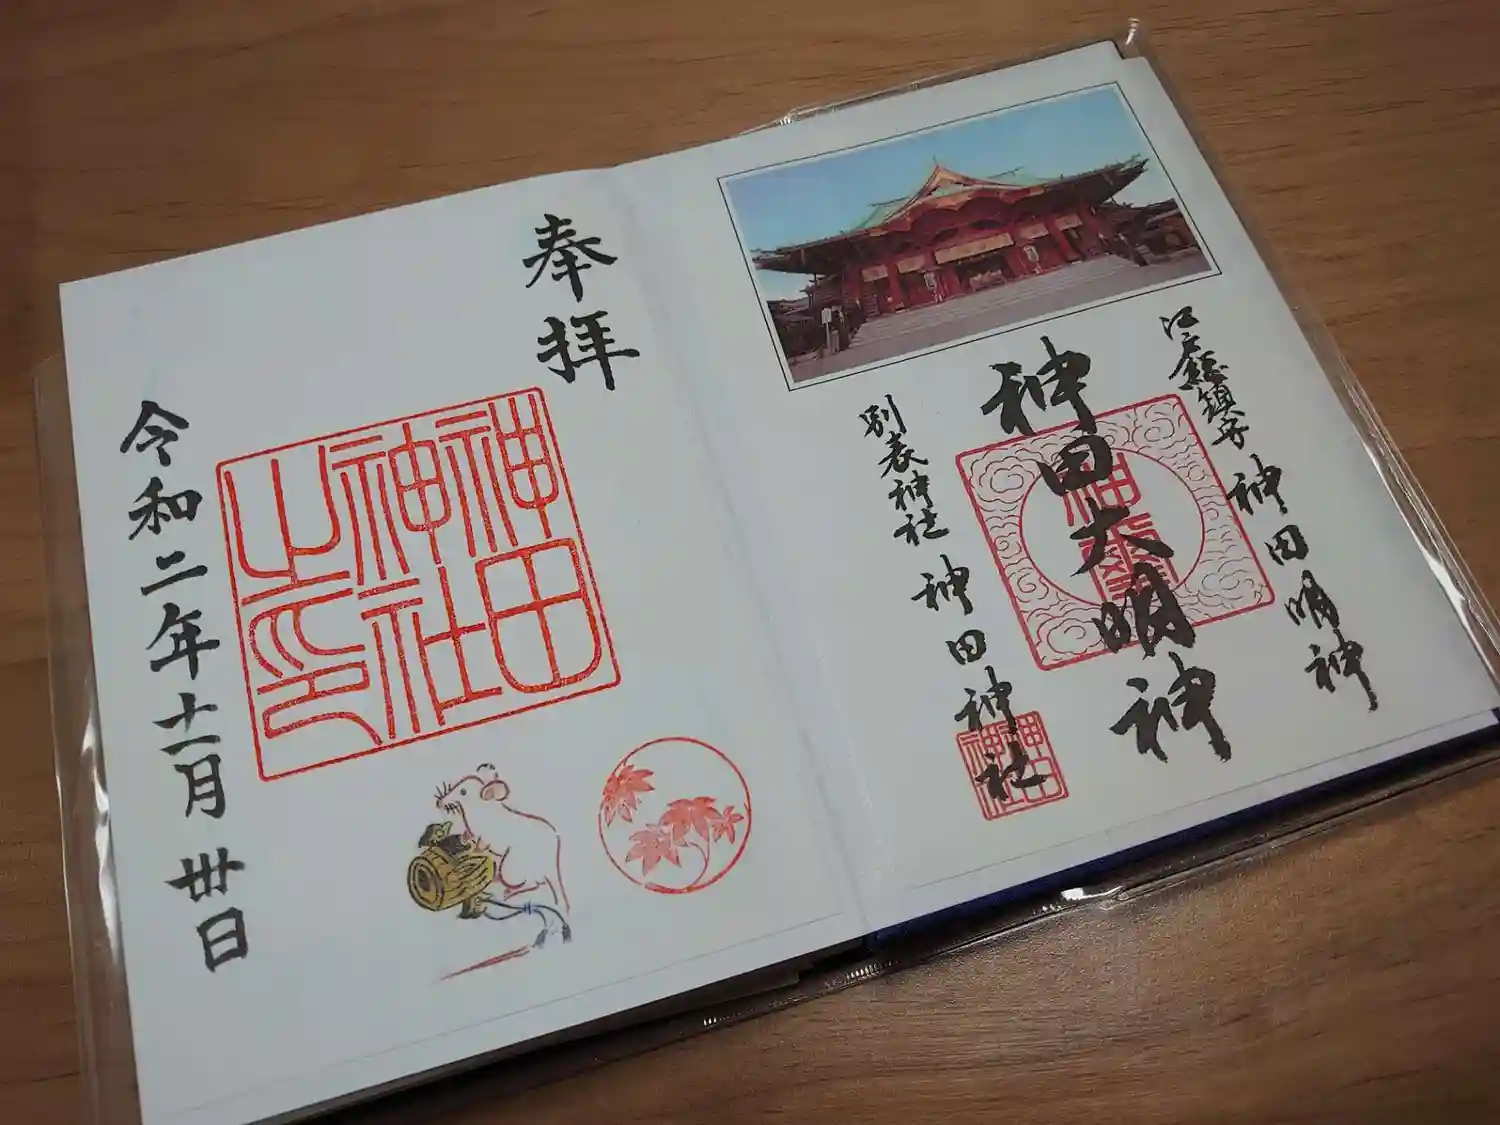 江戸総鎮守 神田明神
神田大明神
別表神社 神田神社
神田
神社
奉拝
神田
神社
之印
令和二年十一月卅日